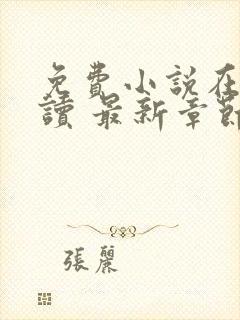 免費小說在
讀 最新章節
張麗